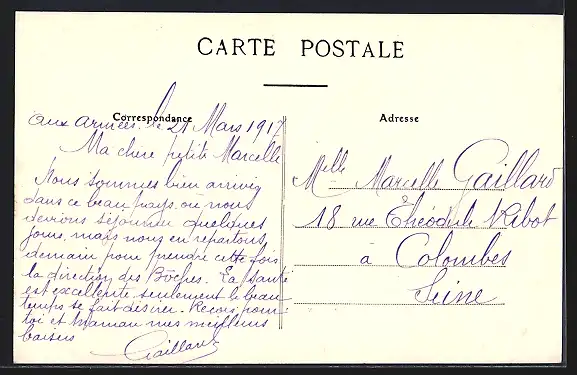 CARTE POSTALE
Correspondance
Adresse
Aux Armées, le 21 Mars 1917
Ma chère petite Marcelle
Nous sommes bien arrivés
dans ce beau pays, où nous
devrions séjourner quelques
jours, mais nous en repartons
demain pour prendre cette fois
la direction des Bôches. La santé
est excellente seulement le beau
temps se fait désirer. Reçois pour
toi et Maman mes meilleurs
baisers
Gaillard
Melle Marcelle Gaillard
18 rue Théodule Ribot
à Colombes
Seine